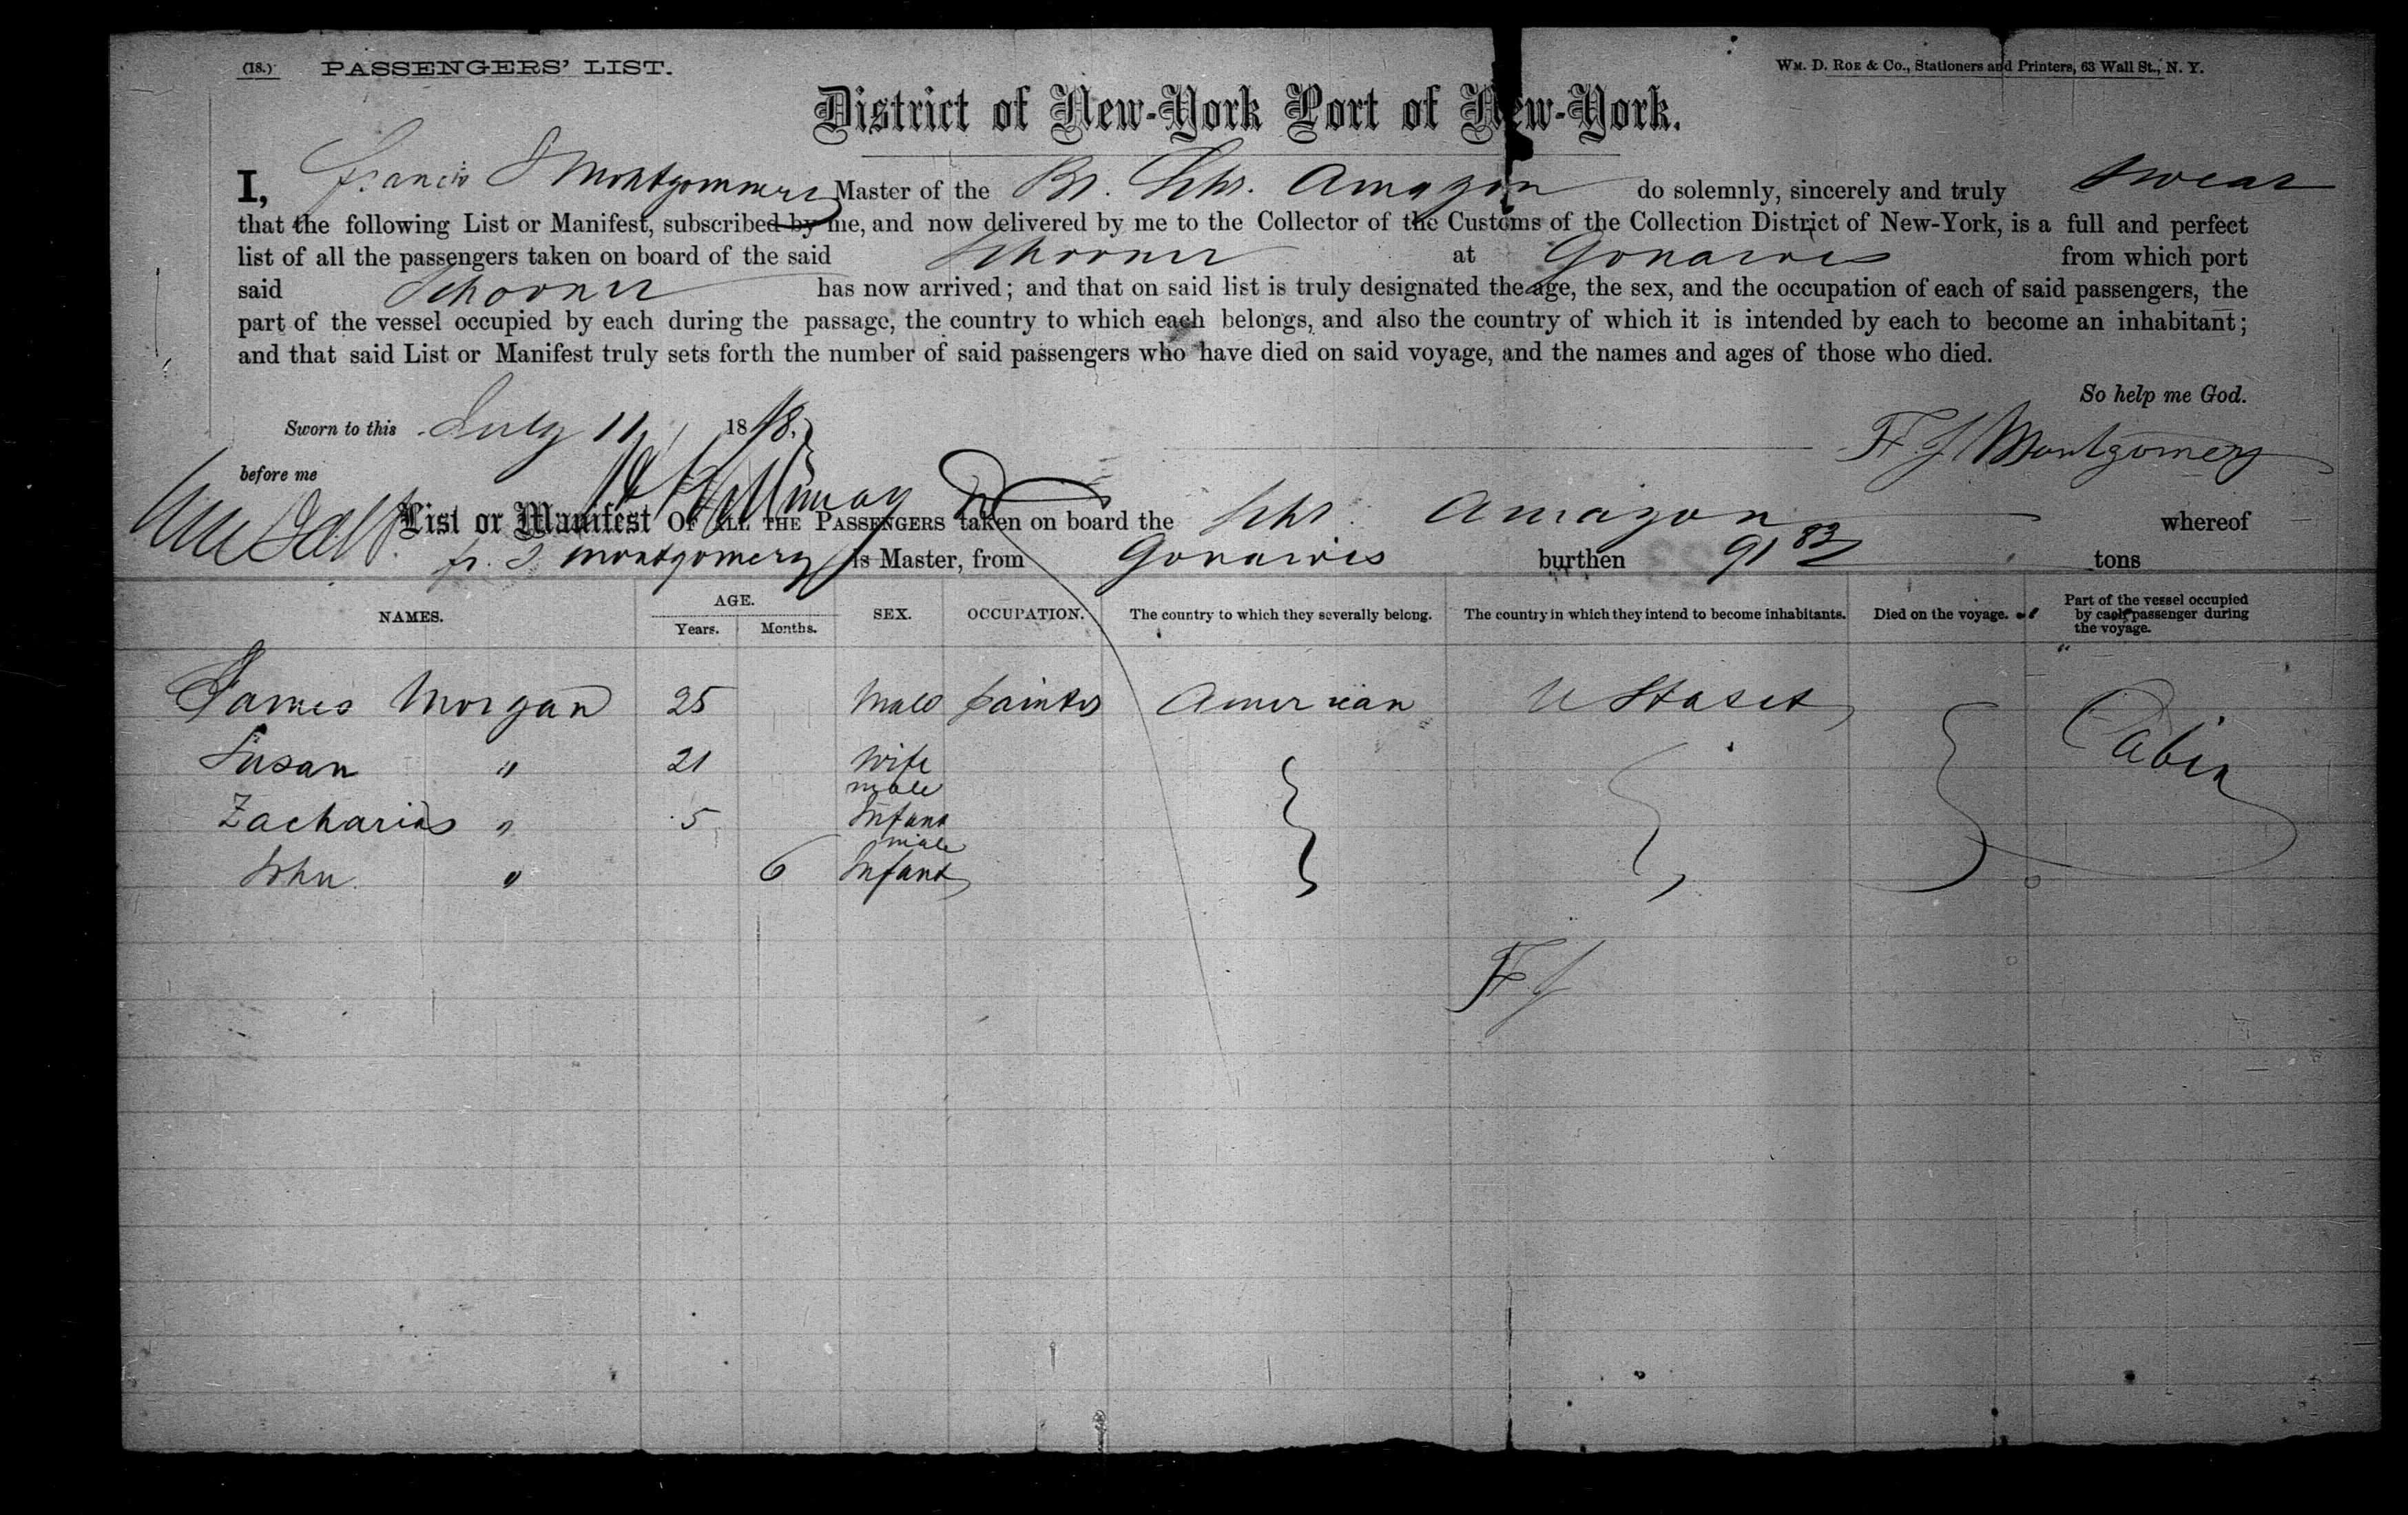 (18.) PASSENGERS' LIST. WM. D. ROE & CO., Stationers and Printers, 63 Wall St., N. Y.
District of New-York Port of New-York.
I, Francis S Montgommery Master of the Br. Schr. Amazon do solemnly, sincerely and truly swear
that the following List or Manifest, subscribed by me, and now delivered by me to the Collector of the Customs of the Collection District of New-York, is a full and perfect
list of all the passengers taken on board of the said Schooner at Gonaives from which port
said Schooner has now arrived; and that on said list is truly designated the age, the sex, and the occupation of each of said passengers, the
part of the vessel occupied by each during the passage, the country to which each belongs, and also the country of which it is intended by each to become an inhabitant;
and that said List or Manifest truly sets forth the number of said passengers who have died on said voyage, and the names and ages of those who died.
So help me God.
Sworn to this July 11 18
F. S Montgomery
before me
List or Manifest OF ALL THE PASSENGERS taken on board the Schr. Amazon whereof
Fr. S Montgomery is Master, from Gonaives burthen 91 83 tons
NAMES. AGE. Years. Months. SEX. OCCUPATION. The country to which they severally belong. The country in which they intend to become inhabitants. Died on the voyage. Part of the vessel occupied by each passenger during the voyage.
James Morgan 25 Male painter American U States Cabin
Susan " 21 Wife
male
Zacharias " 5 Infant
male
John " 6 Infant
F. S